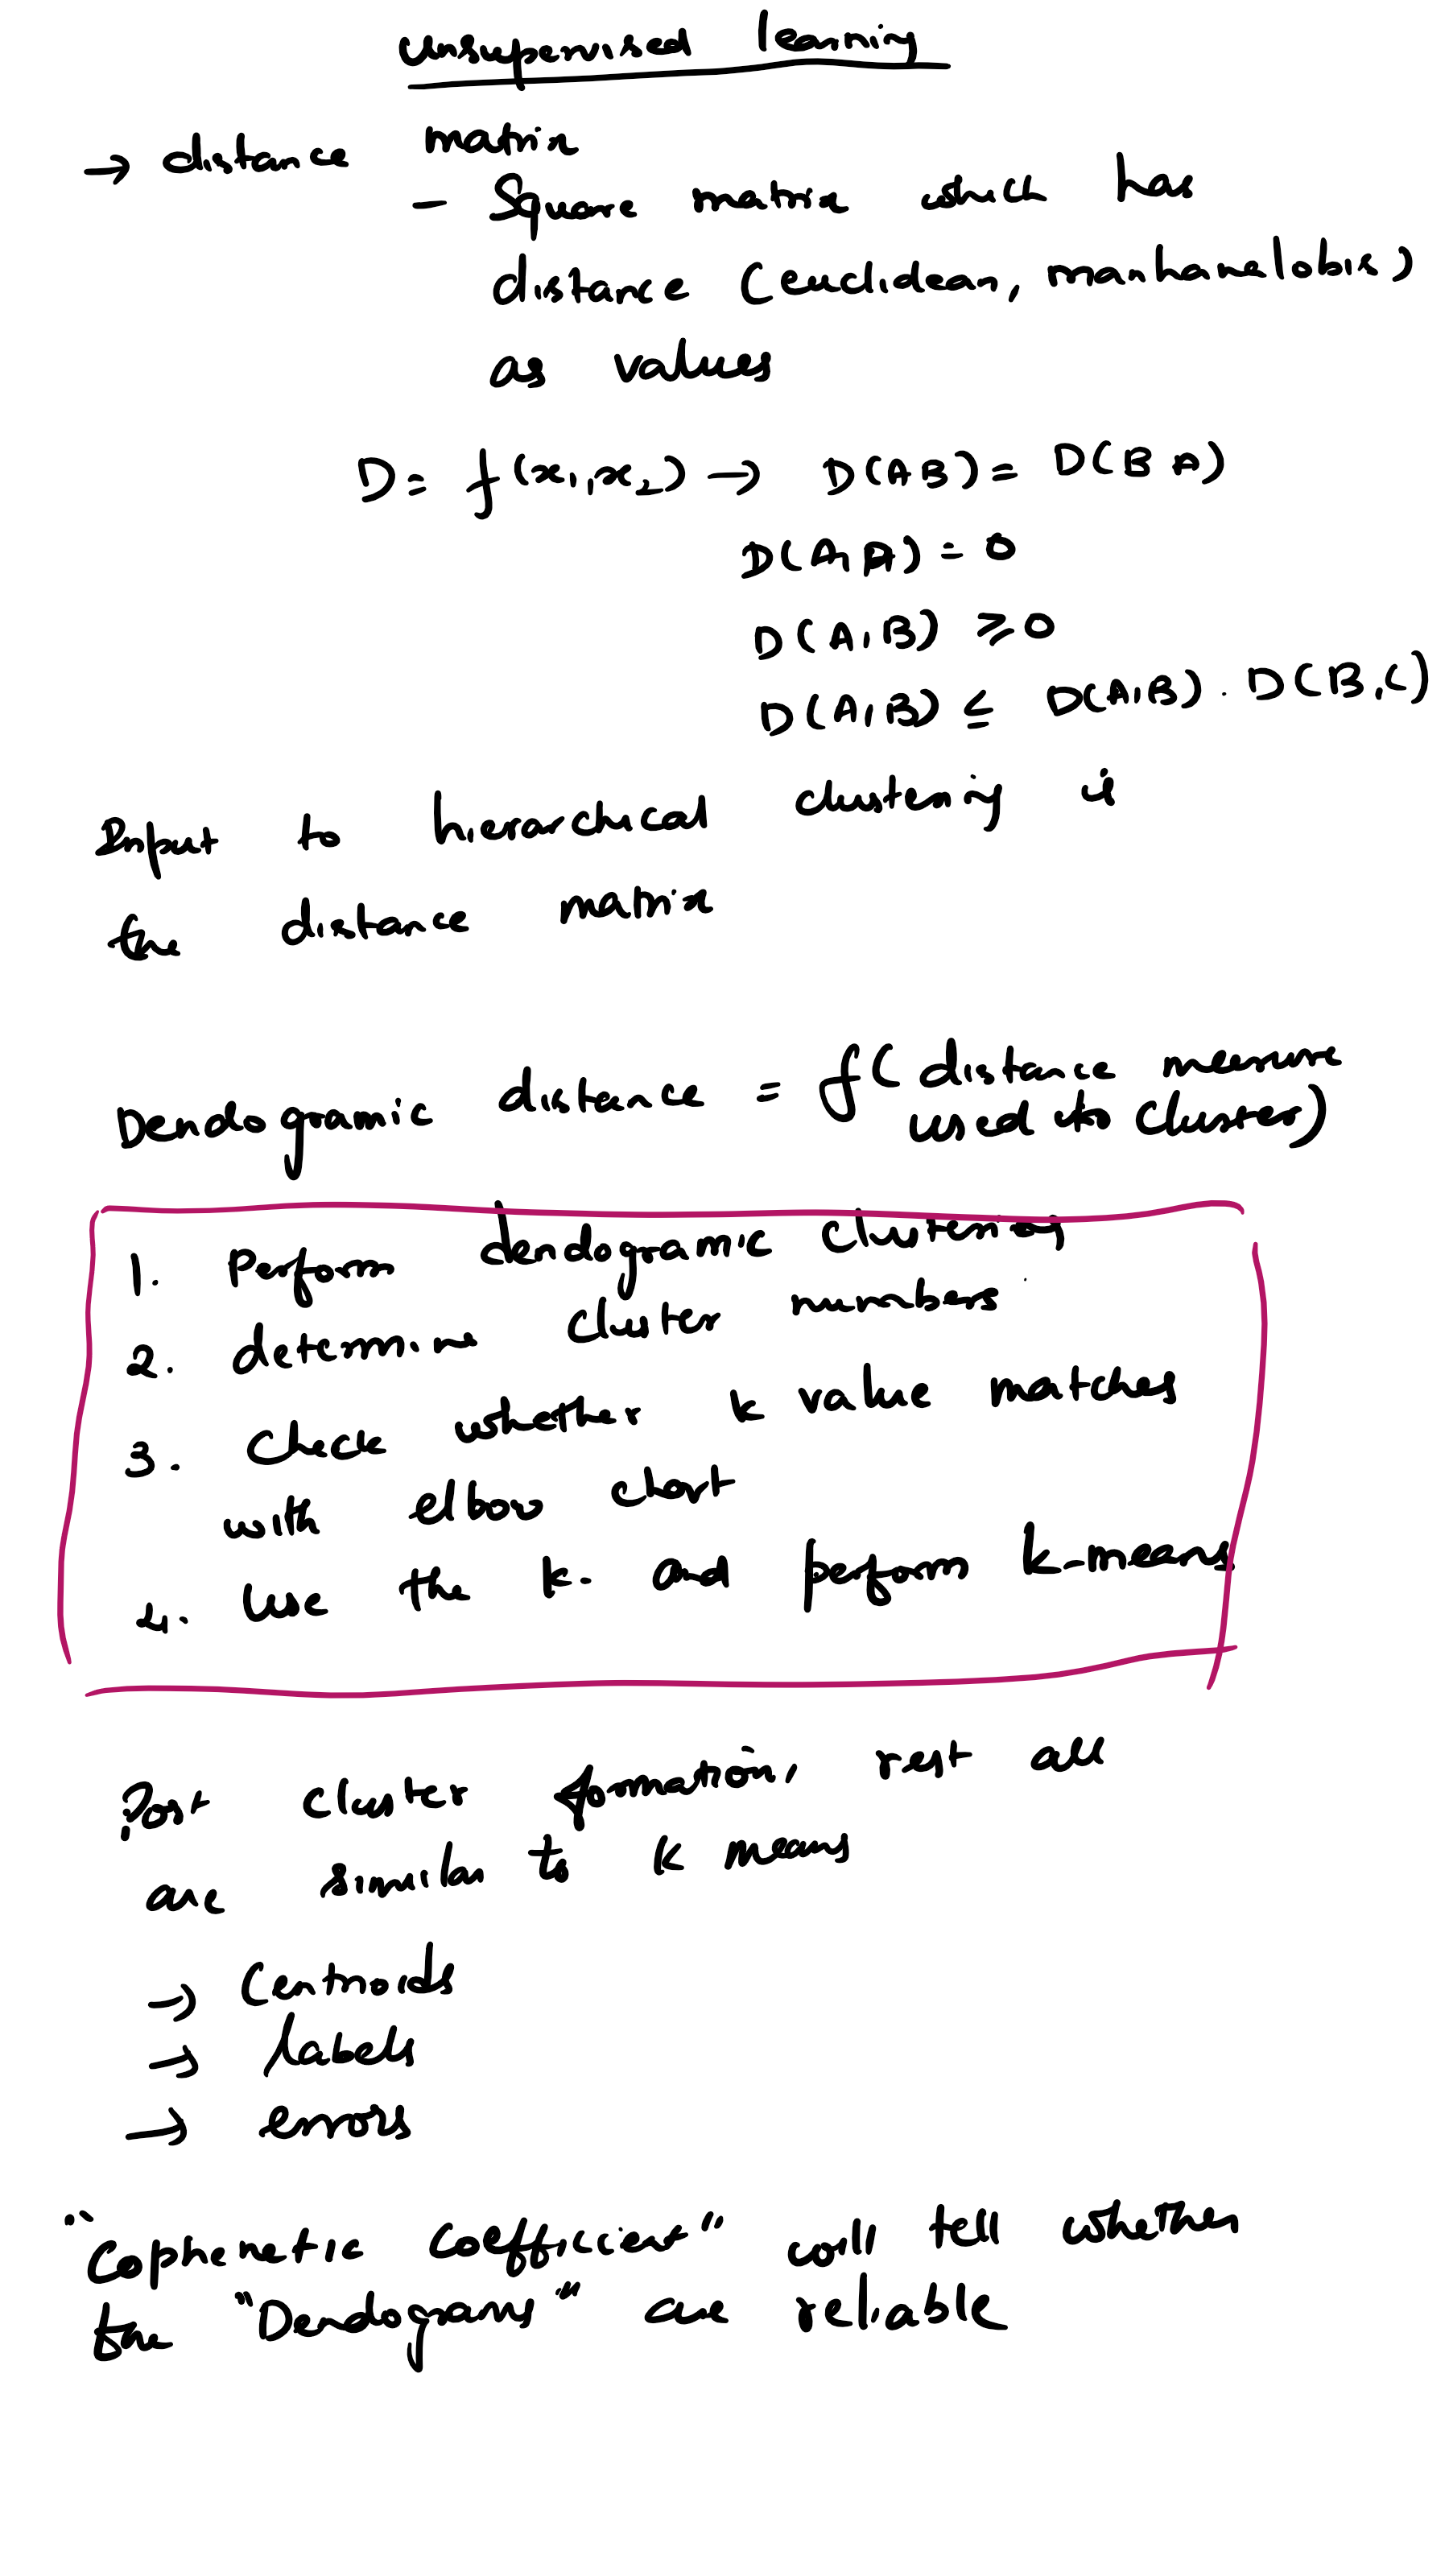 Unsupervised learning
→ distance matrix
- Square matrix which has
distance (euclidean, manhanalobis)
as values
D = f(x₁,x₂) → D(AB) = D(BA)
D(A,A) = 0
D(A,B) ≥ 0
D(A,B) ≤ D(A,B) . D(B,C)
Input to hierarchical clustering is
the distance matrix
Dendogramic distance = f( distance measure
used to cluster)
1. Perform dendogramic clustering
2. determine cluster numbers
3. check whether k value matches
with elbow chart
4. Use the k. and perform k-means
Post cluster formation, rest all
are similar to k means
→ Centroids
→ labels
→ errors
"Cophenetic coefficient" will tell whether
the "Dendograms" are reliable